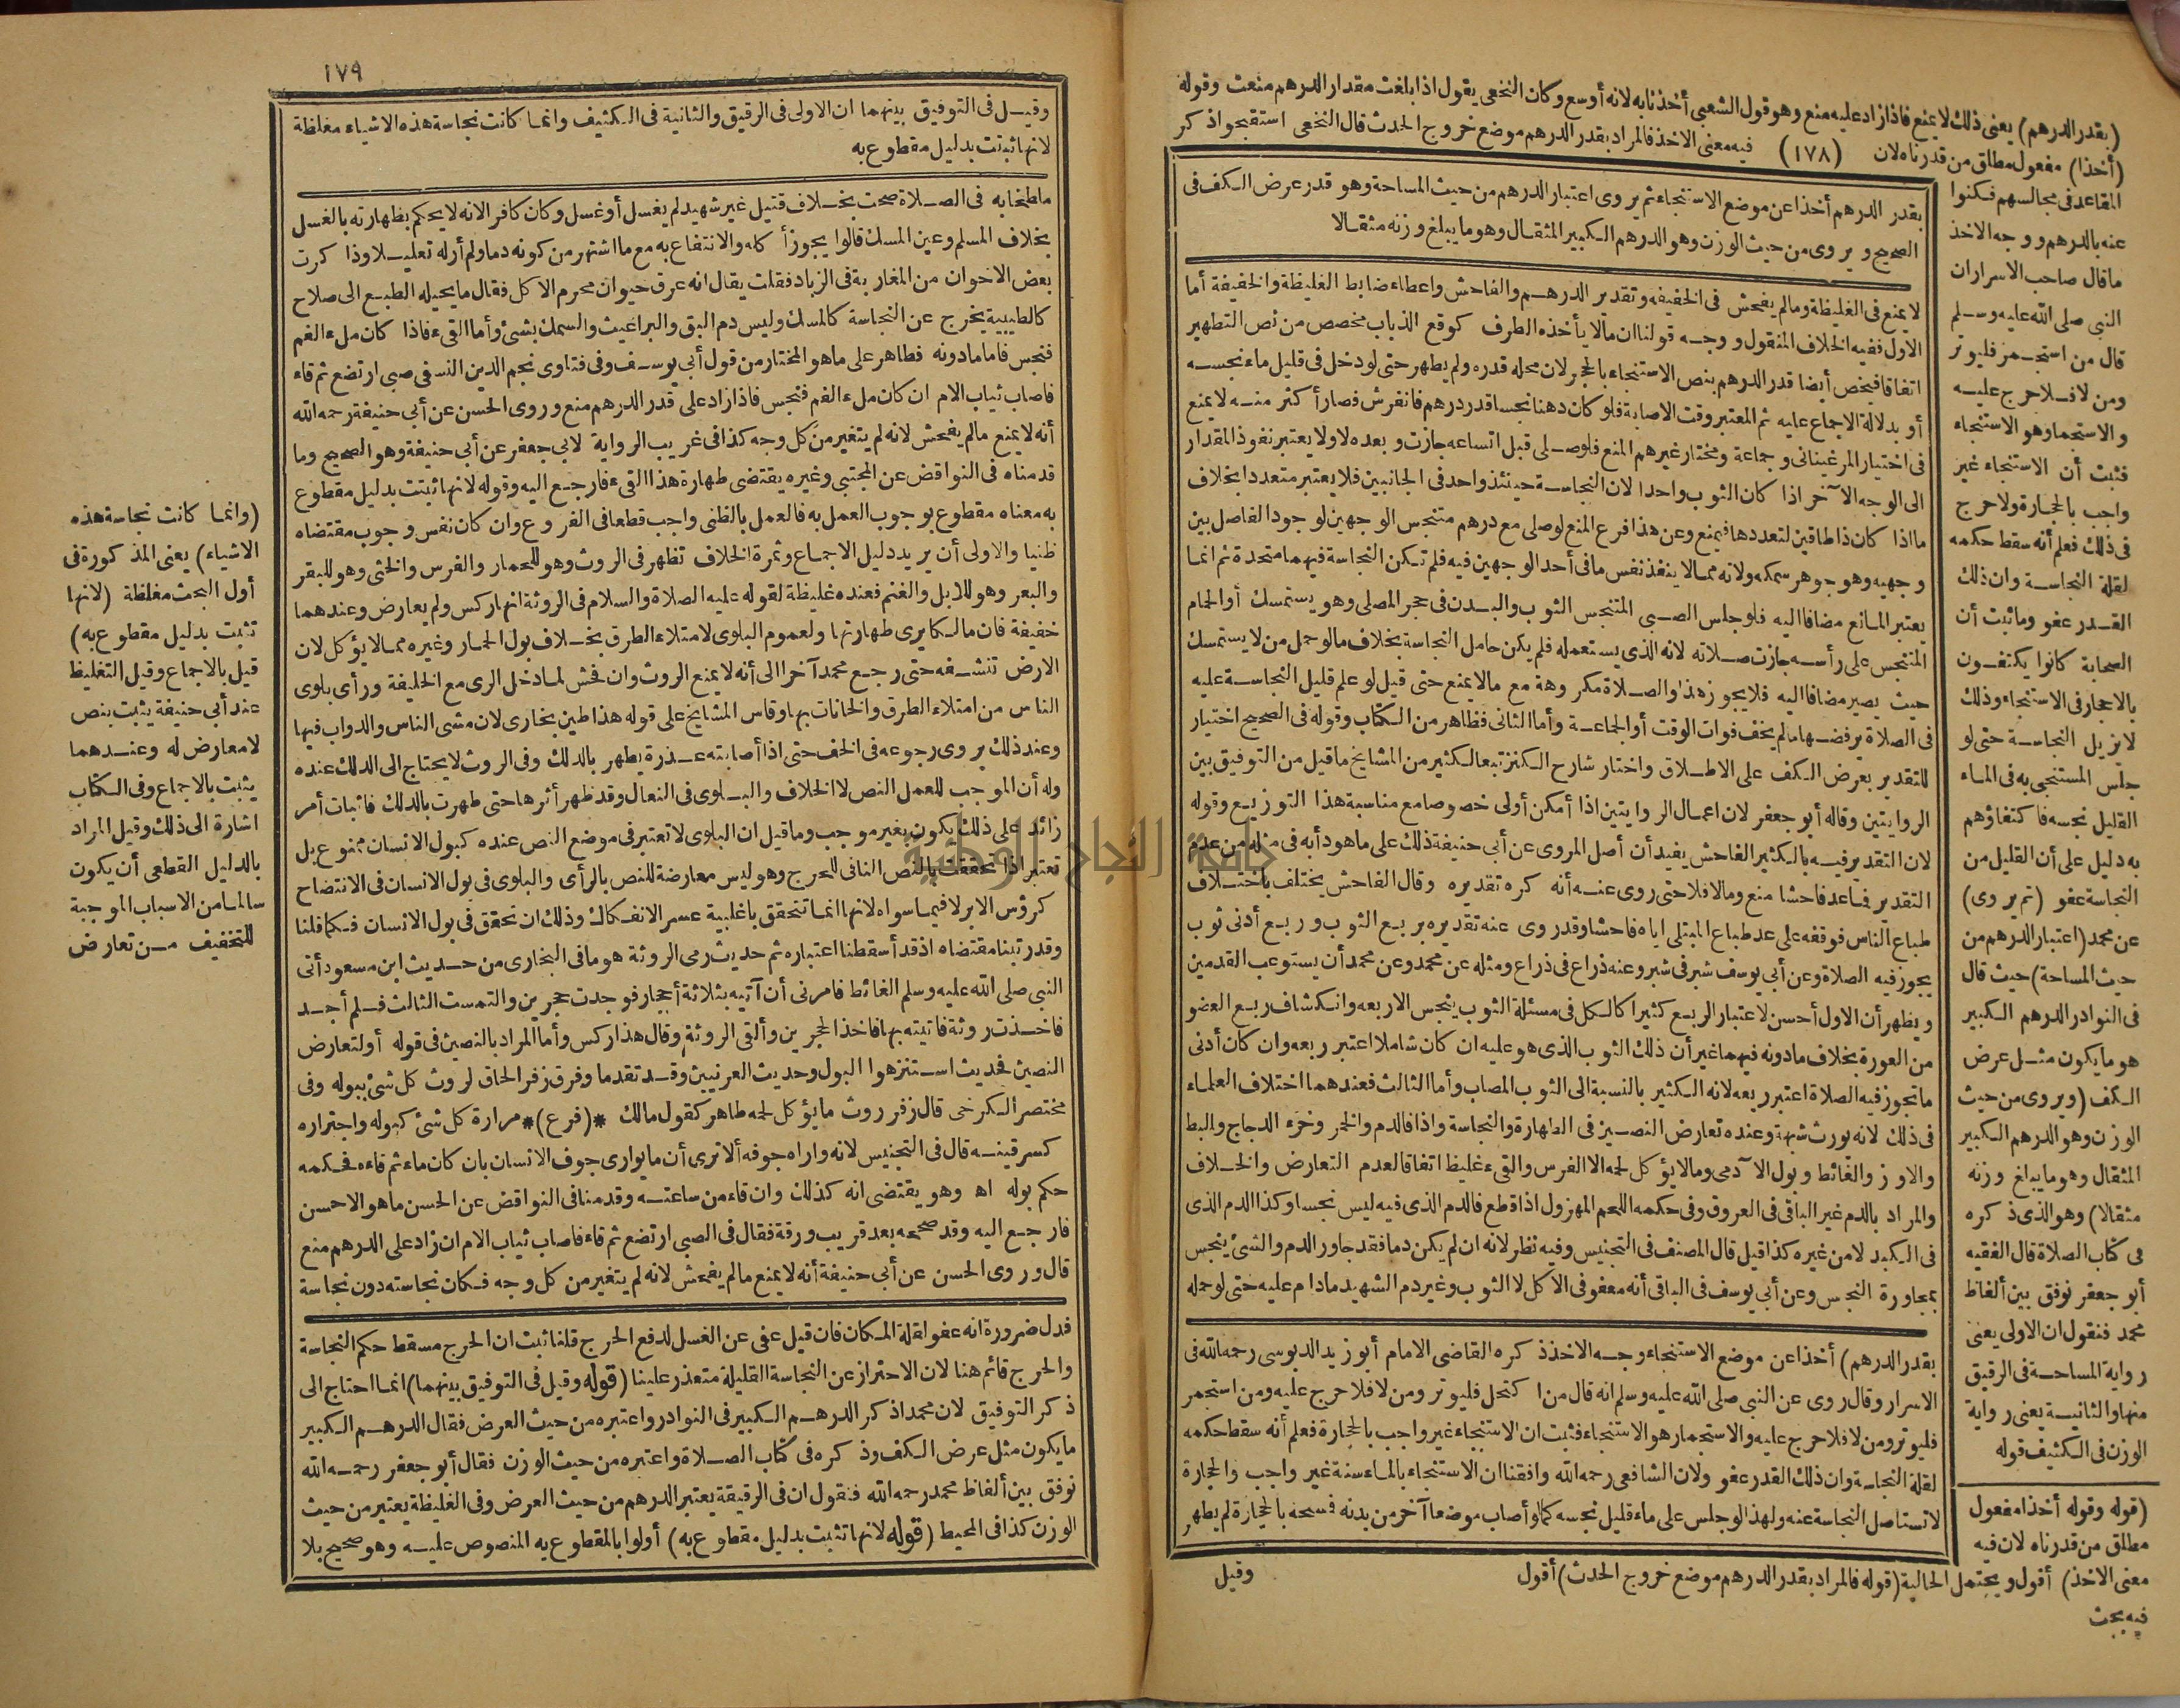 (بقدر الدرهم) يعنى ذلك لا يمنع فاذا زاد عليه منع وهو قول الشعبي أخذنا به لانه أوسع وكان النخعي يقول اذا بلغت مقدار الدرهم منعت وقوله
(أخذا) مفعول مطلق من قدرناه لان (١٧٨) فيه معنى الاخذ فالمراد بقدر الدرهم موضع خروج الحدث قال النخعى استقبحوا ذكر
المقاعد فى مجالسهم فكنوا
عنه بالدرهم ووجه الاخذ
ما قال صاحب الاسرار ان
النبى صلى الله عليه وسلم
قال من استجمر فليوتر
ومن لا فلا حرج عليه
والاستجمار هو الاستنجاء
فثبت أن الاستنجاء غير
واجب بالحجارة ولا حرج
فى ذلك فعلم أنه سقط حكمه
لقلة النجاسة وان ذلك
القدر عفو وما ثبت أن
الصحابة كانوا يكتفون
بالاحجار فى الاستنجاء وذلك
لا يزيل النجاسة حتى لو
جلس المستنجى به فى الماء
القليل نجسه فاكتفاؤهم
به دليل على أن القليل من
النجاسة عفو (ثم يروى)
عن محمد (اعتبار الدرهم من
حيث المساحة) حيث قال
فى النوادر الدرهم الكبير
هو ما يكون مثل عرض
الكف (ويروى من حيث
الوزن وهو الدرهم الكبير
المثقال وهو ما يبلغ وزنه
مثقالا) وهو الذى ذكره
فى كتاب الصلاة قال الفقيه
أبو جعفر نوفق بين ألفاظ
محمد فنقول ان الاولى يعنى
رواية المساحة فى الرقيق
منها والثانية يعنى رواية
الوزن فى الكثيف قوله
(قوله وقوله أخذا مفعول
مطلق من قدرناه لان فيه
معنى الاخذ) أقول ويحتمل الحالية (قوله فالمراد بقدر الدرهم موضع خروج الحدث) أقول
فيه بحث
بقدر الدرهم أخذا عن موضع الاستنجاء ثم يروى اعتبار الدرهم من حيث المساحة وهو قدر عرض الكف فى
الصحيح ويروى من حيث الوزن وهو الدرهم الكبير المثقال وهو ما يبلغ وزنه مثقالا
لا يمنع فى الغليظة وما لم يفحش فى الخفيفة وتقدير الدرهم والفاحش واعطاء ضابط الغليظة والخفيفة أما
الاول ففيه الخلاف المنقول ووجه قولنا ان ما لا يأخذه الطرف كوقع الذباب مخصص من نص التطهير
اتفاقا فيخص أيضا قدر الدرهم بنص الاستنجاء بالحجر لان محله قدره ولم يطهر حتى لو دخل فى قليل ماء نجسه
أو بدلالة الاجماع عليه ثم المعتبر وقت الاصابة فلو كان دهنا نجسا قدر درهم فانفرش فصار أكثر منه لا يمنع
فى اختيار المرغينانى وجماعة ومختار غيرهم المنع فلو صلى قبل اتساعه جازت وبعده لا ولا يعتبر نفوذ المقدار
الى الوجه الآخر اذا كان الثوب واحدا لان النجاسة حينئذ واحد فى الجانبين فلا يعتبر متعددا بخلاف
ما اذا كان ذا طاقين لتعددها فيمنع وعن هذا فرع المنع لو صلى مع درهم متنجس الوجهين لوجود الفاصل بين
وجهيه وهو جوهر سمكه ولانه مما لا ينفذ نفس ما فى أحد الوجهين فيه فلم تكن النجاسة فيهما متحدة ثم انما
يعتبر المانع مضافا اليه فلو جلس الصبى المتنجس الثوب والبدن فى حجر المصلى وهو يستمسك أو الحمام
المتنجس على رأسه جازت صلاته لانه الذى يستعمله فلم يكن حامل النجاسة بخلاف ما لو حمل من لا يستمسك
حيث يصير مضافا اليه فلا يجوز هذا والصلاة مكروهة مع ما لا يمنع حتى قيل لو علم قليل النجاسة عليه
فى الصلاة يرفضها ما لم يخف فوات الوقت أو الجماعة وأما الثانى فظاهر من الكتاب وقوله فى الصحيح اختيار
للتقدير بعرض الكف على الاطلاق واختار شارح الكنز تبعا لكثير من المشايخ ما قيل من التوفيق بين
الروايتين وقاله أبو جعفر لان اعمال الروايتين اذا أمكن أولى خصوصا مع مناسبة هذا التوزيع وقوله
لان التقدير فيه بالكثير الفاحش يفيد أن أصل المروى عن أبى حنيفة ذلك على ما هو دأبه فى مثله من عدم
التقدير فما عد فاحشا منع وما لا فلا حتى روى عنه أنه كره تقديره وقال الفاحش يختلف باختلاف
طباع الناس فوقفه على عد طباع المبتلى اياه فاحشا وقد روى عنه تقديره بربع الثوب وربع أدنى ثوب
يجوز فيه الصلاة وعن أبى يوسف شبر فى شبر وعنه ذراع فى ذراع ومثله عن محمد وعن محمد أن يستوعب القدمين
ويظهر أن الاول أحسن لاعتبار الربع كثيرا كالكل فى مسئلة الثوب ينجس الا ربعه وانكشاف ربع العضو
من العورة بخلاف ما دونه فيهما غير أن ذلك الثوب الذى هو عليه ان كان شاملا اعتبر ربعه وان كان أدنى
ما تجوز فيه الصلاة اعتبر ربعه لانه الكثير بالنسبة الى الثوب المصاب وأما الثالث فعندهما اختلاف العلماء
فى ذلك لانه يورث شبهة وعنده تعارض النصين فى الطهارة والنجاسة واذا فالدم والخمر وخرء الدجاج والبط
والاوز والغائط وبول الآدمى وما لا يؤكل لحمه الا الفرس والقىء غليظ اتفاقا لعدم التعارض والخلاف
والمراد بالدم غير الباقى فى العروق وفى حكمه اللحم المهزول اذا قطع فالدم الذى فيه ليس نجسا وكذا الدم الذى
فى الكبد لا من غيره كذا قيل قال المصنف فى التجنيس وفيه نظر لانه ان لم يكن دما فقد جاور الدم والشئ ينجس
بمجاورة النجس وعن أبى يوسف فى الباقى أنه معفو فى الاكل لا الثوب وغير دم الشهيد مادام عليه حتى لو حمله
بقدر الدرهم) أخذا عن موضع الاستنجاء وجه الاخذ ذكره القاضى الامام أبو زيد الدبوسى رحمه الله فى
الاسرار وقال روى عن النبى صلى الله عليه وسلم انه قال من اكتحل فليوتر ومن لا فلا حرج عليه ومن استجمر
فليوتر ومن لا فلا حرج عليه والاستجمار هو الاستنجاء فثبت ان الاستنجاء غير واجب بالحجارة فعلم أنه سقط حكمه
لقلة النجاسة وان ذلك القدر عفو ولان الشافعى رحمه الله وافقنا ان الاستنجاء بالماء سنة غير واجب والحجارة
لا تستاصل النجاسة عنه ولهذا لو جلس على ماء قليل نجسه كما لو أصاب موضعا آخر من بدنه فمسحه بالحجارة لم يطهر
وقيل
١٧٩
وقيل فى التوفيق بينهما ان الاولى فى الرقيق والثانية فى الكثيف وانما كانت نجاسة هذه الاشياء مغلظة
لانها ثبتت بدليل مقطوع به
ملطخا به فى الصلاة صحت بخلاف قتيل غير شهيد لم يغسل أو غسل وكان كافرا لانه لا يحكم بطهارته بالغسل
بخلاف المسلم وعين المسك قالوا يجوز أكله والانتفاع به مع ما اشتهر من كونه دما ولم أر له تعليلا وذاكرت
بعض الاخوان من المغاربة فى الزباد فقلت يقال انه عرق حيوان محرم الاكل فقال ما يحيله الطبع الى صلاح
كالطيبية يخرج عن النجاسة كالمسك وليس دم البق والبراغيث والسمك بشئ وأما القىء فاذا كان ملء الفم
فنجس فاما ما دونه فطاهر على ما هو المختار من قول أبى يوسف وفى فتاوى نجم الدين النسفى صبى ارتضع ثم قاء
فاصاب ثياب الام ان كان ملء الفم فنجس فاذا زاد على قدر الدرهم منع وروى الحسن عن أبى حنيفة رحمه الله
أنه لا يمنع ما لم يفحش لانه لم يتغير من كل وجه كذا فى غريب الرواية لابى جعفر عن أبى حنيفة وهو الصحيح وما
قدمناه فى النواقض عن المجتبى وغيره يقتضى طهارة هذا القىء فارجع اليه وقوله لانها ثبتت بدليل مقطوع
به معناه مقطوع بوجوب العمل به فالعمل بالظنى واجب قطعا فى الفروع وان كان نفس وجوب مقتضاه
ظنيا والاولى أن يريد دليل الاجماع وثمرة الخلاف تظهر فى الروث وهو للحمار والفرس والخثى وهو للبقر
والبعر وهو للابل والغنم فعنده غليظة لقوله عليه الصلاة والسلام فى الروثة انها ركس ولم يعارض وعندهما
خفيفة فان مالكا يرى طهارتها ولعموم البلوى لامتلاء الطرق بخلاف بول الحمار وغيره مما لا يؤكل لان
الارض تنشفه حتى رجع محمد آخرا الى أنه لا يمنع الروث وان فحش لما دخل الرى مع الخليفة ورأى بلوى
الناس من امتلاء الطرق والخانات بها وقاس المشايخ على قوله هذا طين بخارى لان مشى الناس والدواب فيها
وعند ذلك يروى رجوعه فى الخف حتى اذا أصابته عذرة يطهر بالدلك وفى الروث لا يحتاج الى الدلك عنده
وله أن الموجب للعمل النص لا الخلاف والبلوى فى النعال وقد ظهر أثرها حتى طهرت بالدلك فاثبات أمر
زائد على ذلك يكون بغير موجب وما قيل ان البلوى لا تعتبر فى موضع النص عنده كبول الانسان ممنوع بل
تعتبر اذا تحققت بالنص النافى للحرج وهو ليس معارضة للنص بالرأى والبلوى فى بول الانسان فى الانتضاح
كرؤس الابر لا فيما سواه لانها انما تتحقق باغلبية عسر الانفكاك وذلك ان تحقق فى بول الانسان فكما قلنا
وقد رتبنا مقتضاه اذ قد أسقطنا اعتباره ثم حديث رمى الروثة هو ما فى البخارى من حديث ابن مسعود أتى
النبى صلى الله عليه وسلم الغائط فامرنى أن آتيه بثلاثة أحجار فوجدت حجرين والتمست الثالث فلم أجد
فاخذت روثة فاتيته بها فاخذ الحجرين وألقى الروثة وقال هذا ركس وأما المراد بالنصين فى قوله أو لتعارض
النصين فحديث استنزهوا البول وحديث العرنيين وقد تقدما وفرق زفر الحاق لروث كل شئ ببوله وفى
مختصر الكرخى قال زفر روث ما يؤكل لحمه طاهر كقول مالك *(فرع)* مرارة كل شئ كبوله واجتراره
كسرقينه قال فى التجنيس لانه واراه جوفه ألا ترى أن ما يوارى جوف الانسان بان كان ماء ثم قاءه فحكمه
حكم بوله اه وهو يقتضى انه كذلك وان قاء من ساعته وقدمنا فى النواقض عن الحسن ما هو الاحسن
فارجع اليه وقد صححه بعد قريب ورقة فقال فى الصبى ارتضع ثم قاء فاصاب ثياب الام ان زاد على الدرهم منع
قال وروى الحسن عن أبى حنيفة أنه لا يمنع ما لم يفحش لانه لم يتغير من كل وجه فكان نجاسته دون نجاسة
فدل ضرورة انه عفو لقلة المكان فان قيل عفى عن الغسل لدفع الحرج قلنا ثبت ان الحرج مسقط حكم النجاسة
والحرج قائم هنا لان الاحتراز عن النجاسة القليلة متعذر علينا (قوله وقيل فى التوفيق بينهما) انما احتاج الى
ذكر التوفيق لان محمدا ذكر الدرهم الكبير فى النوادر واعتبره من حيث العرض فقال الدرهم الكبير
ما يكون مثل عرض الكف وذكره فى كتاب الصلاة واعتبره من حيث الوزن فقال أبو جعفر رحمه الله
نوفق بين ألفاظ محمد رحمه الله فنقول ان فى الرقيقة يعتبر الدرهم من حيث العرض وفى الغليظة يعتبر من حيث
الوزن كذا فى المحيط (قوله لانها تثبت بدليل مقطوع به) أولوا بالمقطوع به المنصوص عليه وهو صحيح بلا
(وانما كانت نجاسة هذه
الاشياء) يعنى المذكورة فى
أول البحث مغلظة (لانها
تثبت بدليل مقطوع به)
قيل بالاجماع وقيل التغليظ
عند أبى حنيفة يثبت بنص
لا معارض له وعندهما
يثبت بالاجماع وفى الكتاب
اشارة الى ذلك وقيل المراد
بالدليل القطعى أن يكون
سالما من الاسباب الموجبة
للتخفيف من تعارض
جامعة النجاح الوطنية